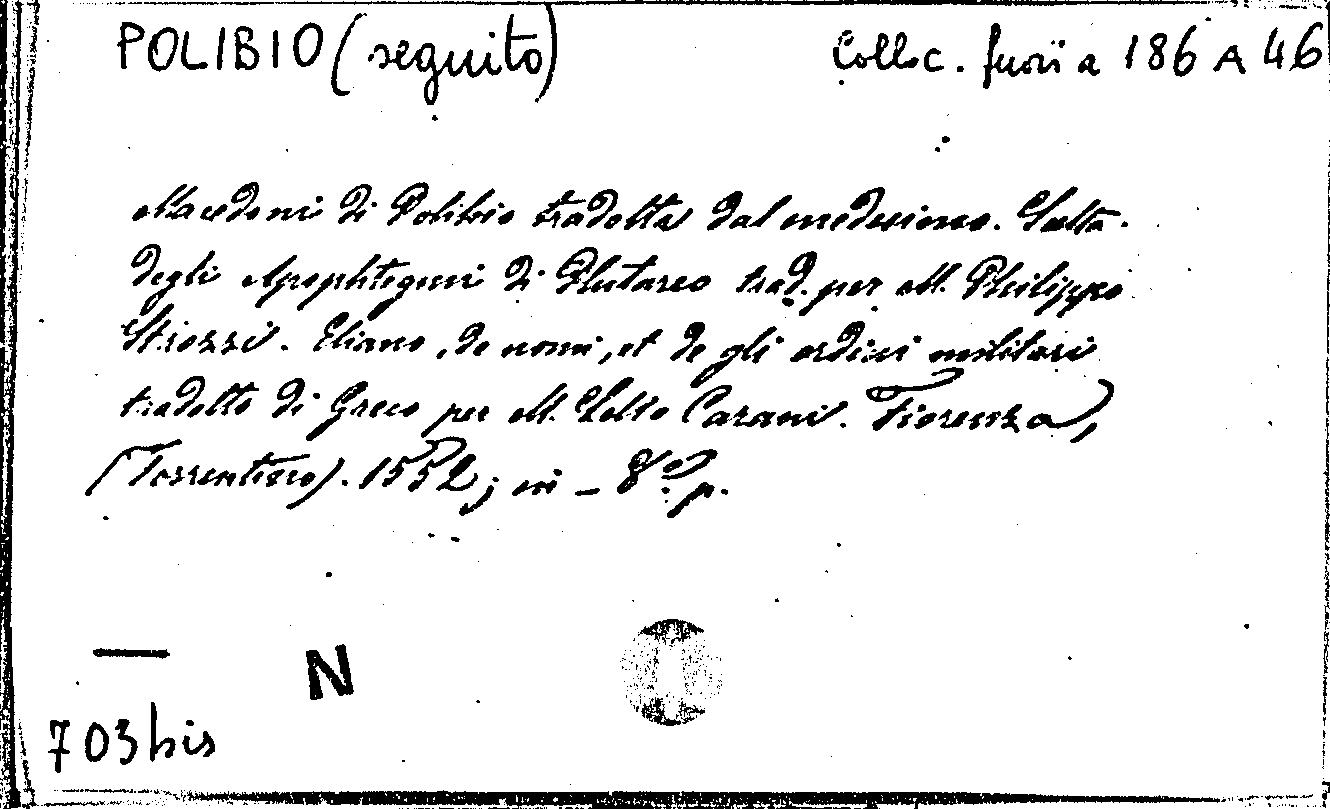 POLIBIO (seguito)
Colloc. fuori a 186 A 46
Macedoni di Polibio tradotta dal medesimo. Scelta
degli Apophtegmi di Plutarco trad. per M. Philippo
Strozzi. Eliano, de nomi, et de gli ordini militari
tradotto di Greco per M. Lelio Carani. Fiorenza,
(Torrentino). 1552; in - 8.º p.
N
703 bis